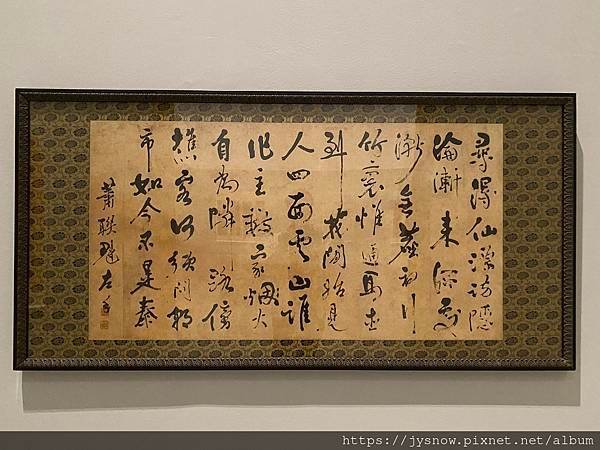 尋得仙源訪隱
淪漸來深處
漸無塵初行
竹裏惟通馬直
到花間始見
人四面雲山誰
作主數家烟火
自為隣路傍
樵客何須問朝
市如今不是秦
蕭聯魁左手
https://jysnow.pixnet.net/album